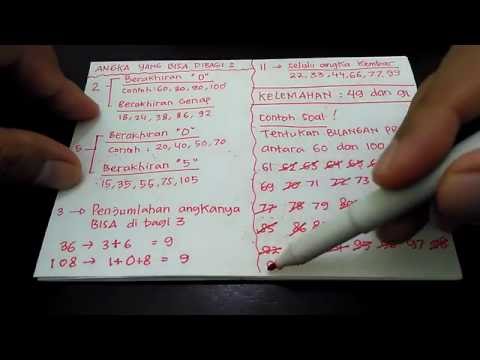 ANGKA YANG BISA DIBAGI 2
2. Berakhiran "0"
Contoh : 60, 20, 90, 100
Berakhiran Genap
18, 24, 38, 86, 92
5. Berakhiran "0"
Contoh : 20, 40, 50, 70
Berakhiran "5"
15, 35, 55, 75, 105
3 → Penjumlahan angkanya
BISA di bagi 3
36 → 3+6 = 9
108 → 1+0+8 = 9
11 → Selalu angka Kembar
22, 33, 44, 66, 77, 99
KELEMAHAN : 49 dan 91
Contoh Soal !
Tentukan BILANGAN PR
antara 60 dan 100
61 62 63 64
69 70 71 72
77 78 79
85 86
97 98